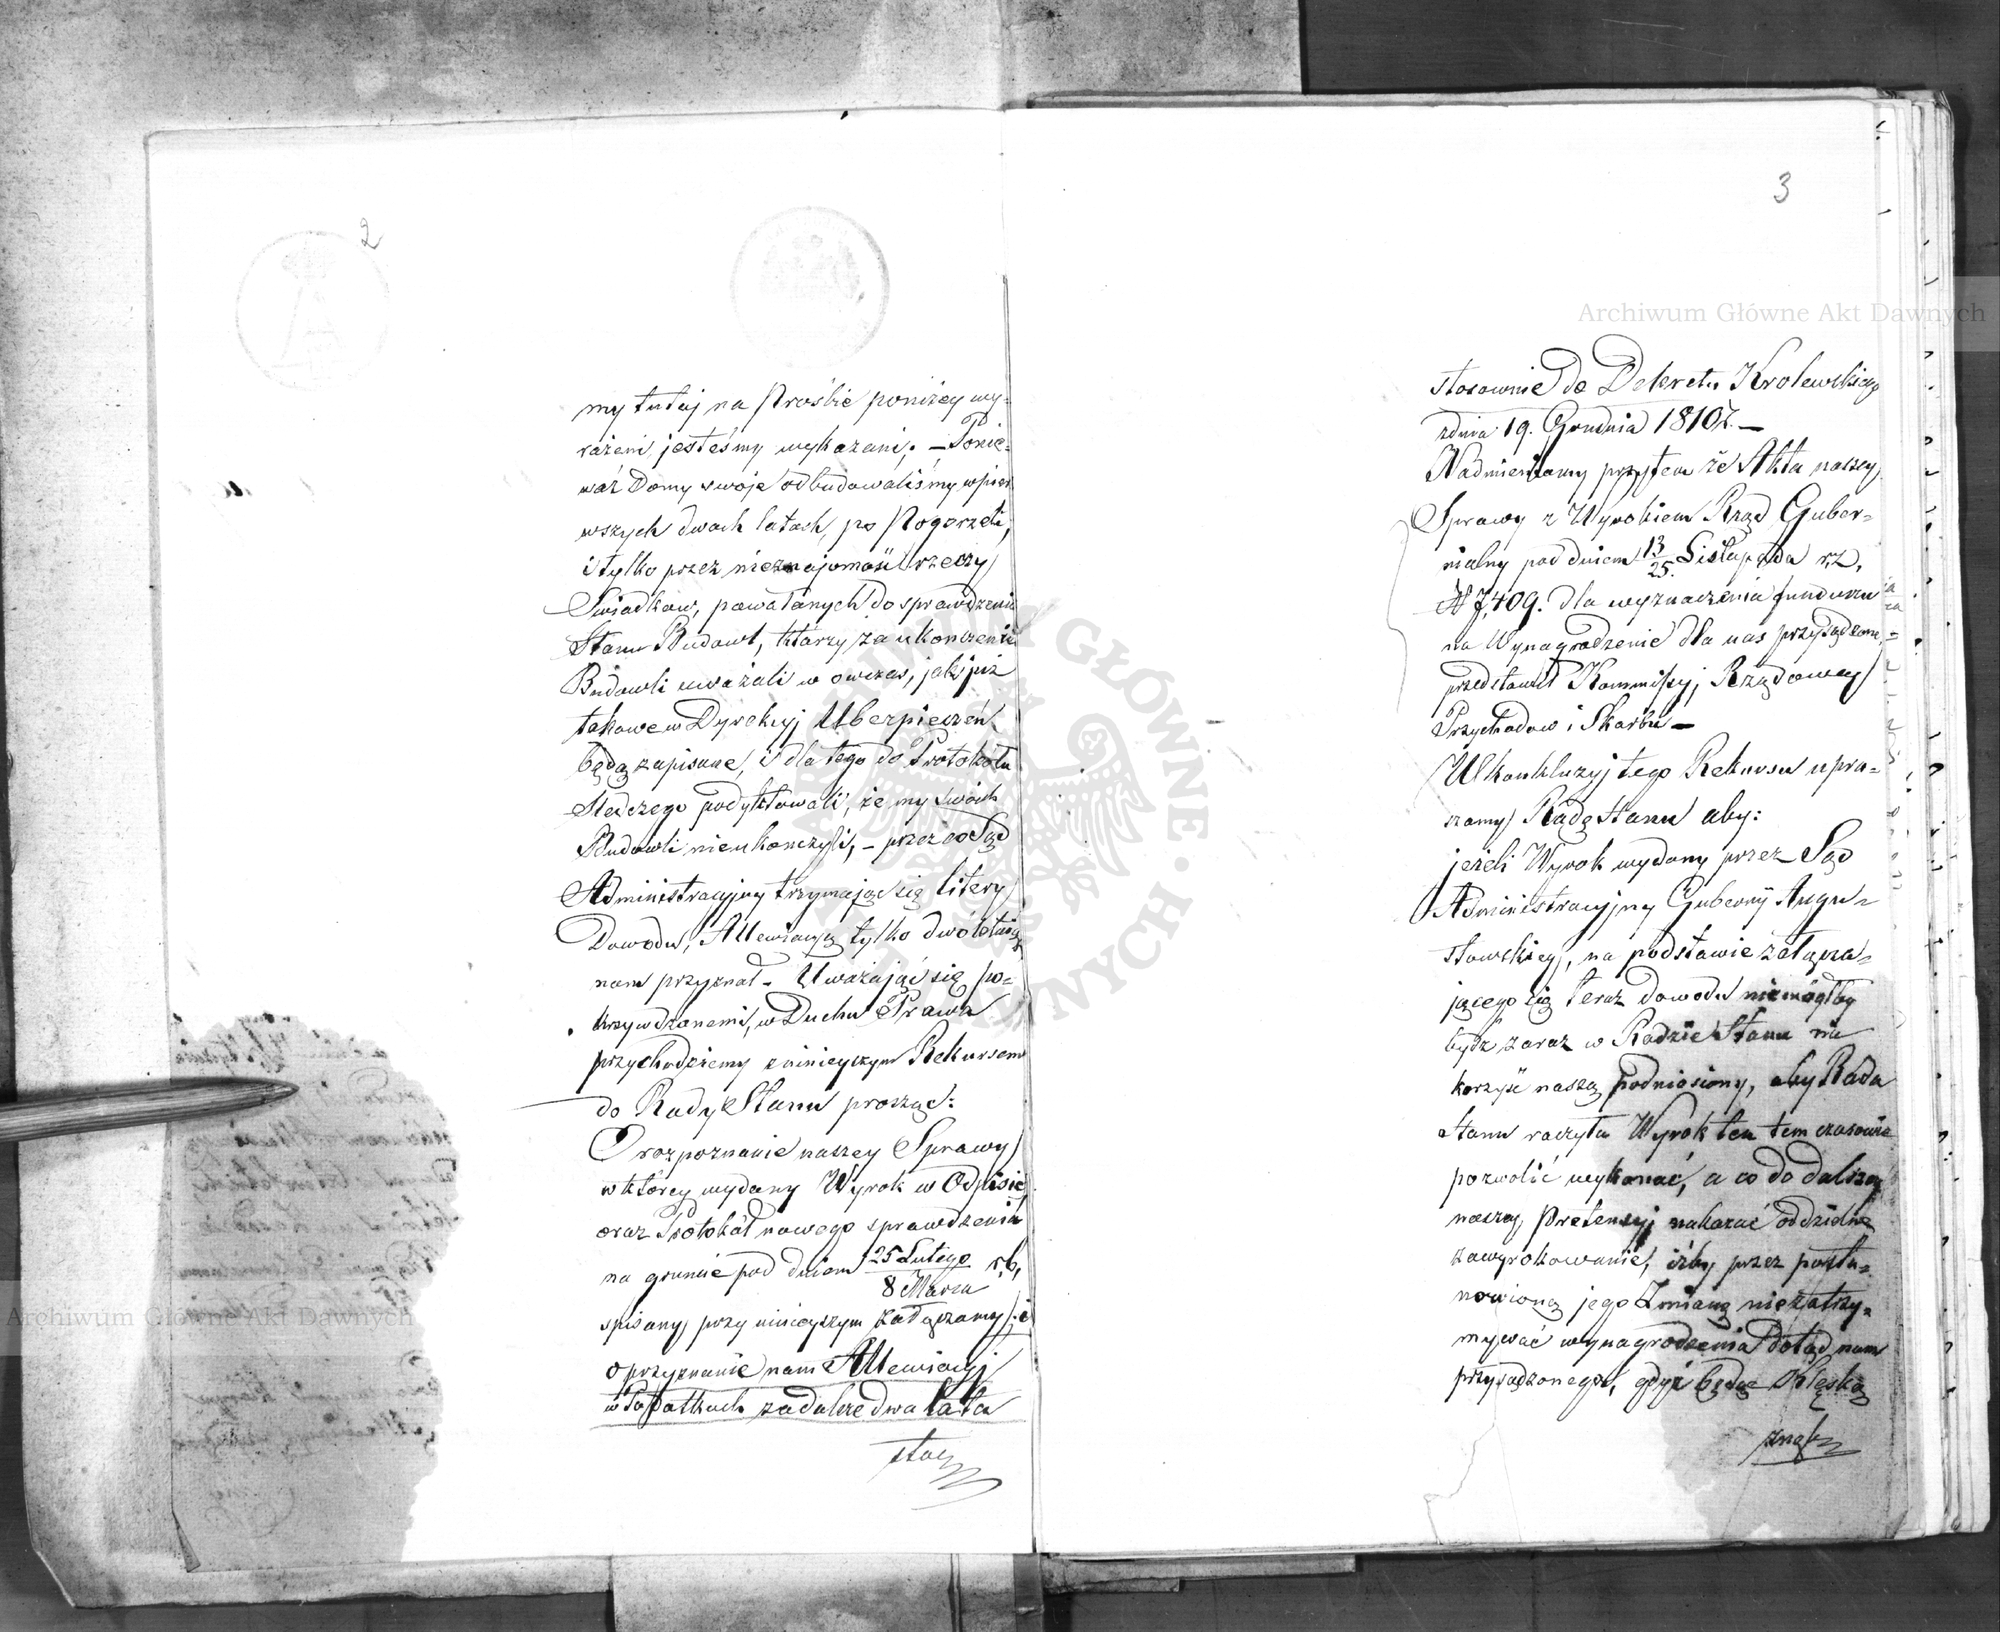 2
my tutaj na Prośbie poniżey wy-
rażeni, jesteśmy wykazani. – Ponie-
waż Domy swoje odbudowaliśmy wpier
wszych dwoch latach, po Pogorzeli,
i tylko przez nieznajomość rzeczy
Swiadkow, powołanych do sprawdzenia
Stanu Budowl, ktorzy za ukończenie
Budowli uważali w owczas, jak już
takowe w Dyrekcyj Ubezpieczeń
będą zapisane, i dla tego do Protokołu
Sledczego podyktowali, że my swoich
Budowli nieukonczyli, – przez co Sąd
Administracyjny trzymając się litery
Dowodu, Allewiacyą tylko dwóletnią
nam przyznał – Uważając się po-
krzywdzonemi, w Duchu Prawa
przychodziemy z ninieyszym Rekursem
do Rady Stanu prosząc:
O rozpoznanie naszey Sprawy
w ktorey wydany Wyrok w Odpisie
oraz Protokół nowego sprawdzenia
na gruncie pod dniem 25 Lutego / 8 Marca r. b.
spisany, przy ninieyszym załączamy, i
o przyznanie nam Allewiacyj
w Podatkach za dalsze dwa lata
stos
3
stosownie do Dekretu Krolewskiego
z dnia 19. Grudnia 1810 r. –
Nadmieniamy przytem że Akta naszey
Sprawy z Wyrokiem Rząd Guber-
nialny pod dniem 13/25. Listopada r. z.
N 7,409. dla wyznaczenia funduszu
na Wynagrodzenie dla nas przysądzone,
przedstawił Kommissyj Rządowey
Przychodow i Skarbu –
W konkluzyj tego Rekursu upra-
szamy Radę Stanu aby:
jeżeli Wyrok wydany przez Sąd
Administracyjny Gubernij Augu-
stowskiey, na podstawie załącza-
jącego się teraz dowodu niemógłby
bydź zaraz w Radzie Stanu na
korzyść naszą podniesiony, aby Rada
Stanu raczyła Wyrok ten tem czasowie
pozwolić wykonać, a co do dalszey
naszey Pretensyj nakazać oddzielne
zawyrokowanie, iżby przez posta-
nowioną jego Zmianę niezatrzy-
mywać wynagrodzenia Dotąd nam
przysądzonego, gdyż będąc Klęską
znęk
Archiwum Główne Akt Dawnych
Archiwum Główne Akt Dawnych
ARCHIWUM GŁÓWNE AKT DAWNYCH